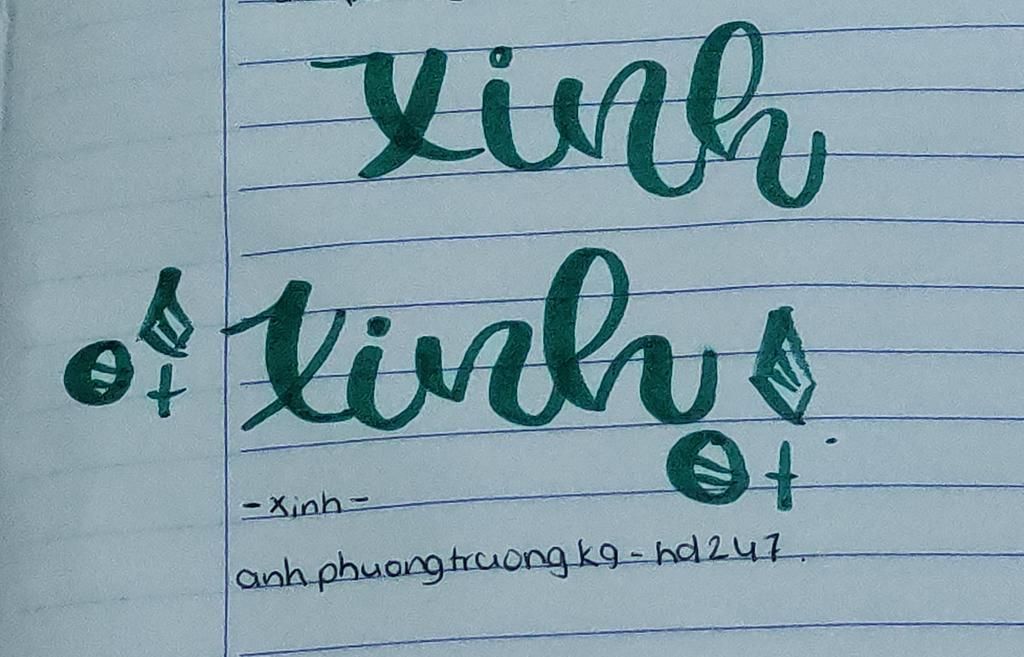 xinh
xinh
- xinh -
anhphuongtruongkg - hd247.